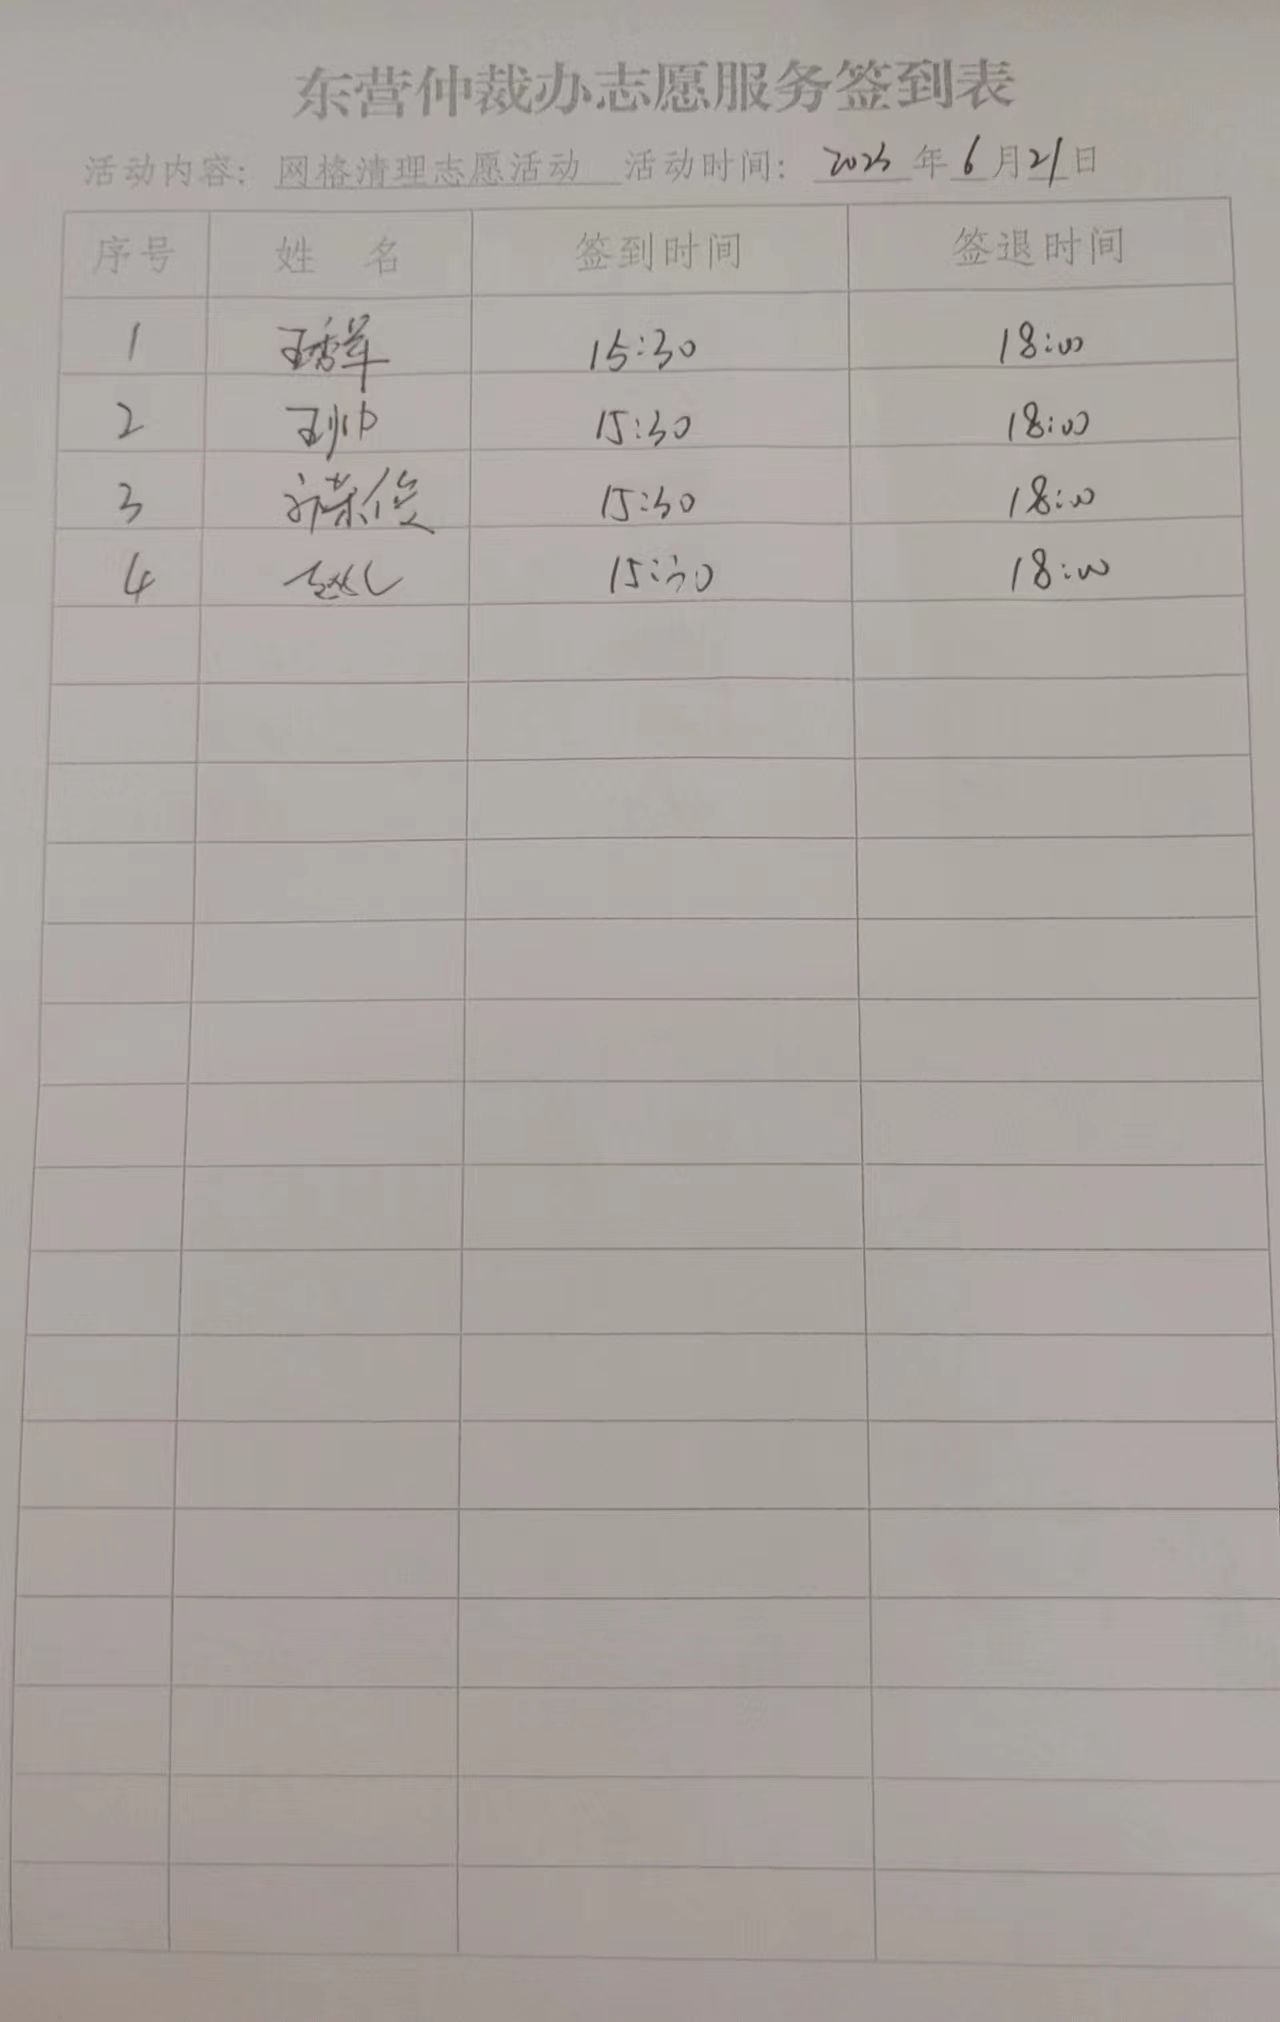 东营仲裁办志愿服务签到表
活动内容：网格清理志愿活动 活动时间：2023年6月21日
序号 姓 名 签到时间 签退时间
1 王秀军 15:30 18:00
2 王帅 15:30 18:00
3 15:30 18:00
4 15:30 18:00